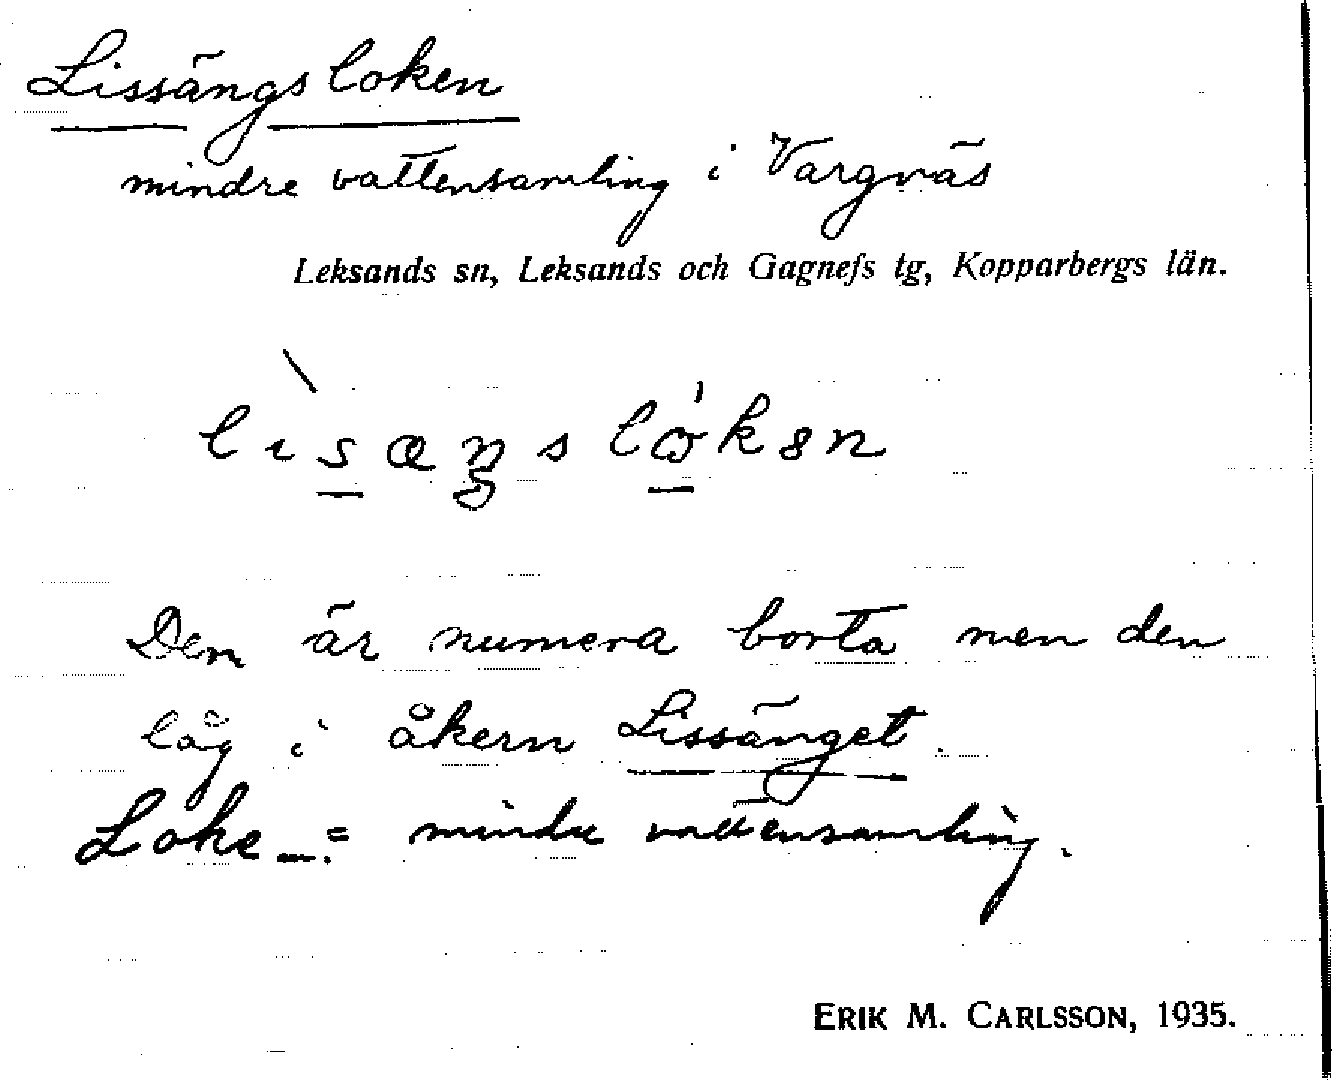 Lissängsloken
mindre vattensamling i Vargnäs
Leksands sn, Leksands och Gagnefs tg, Kopparbergs län.
Den är numera borta men den
låg i åkern Lissänget.
Loke = mindre vattensamling.
ERIK M. CARLSSON, 1935.